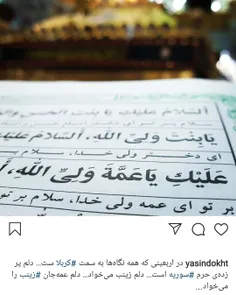 السلام علیک یا بنت الحسن و ال
یَا بِنْتَ وَلِیِّ اللهِ، اَلسَّلامُ عَلَیْكَ
ای دختر ولی خدا، سلام بر تو
عَلَیْكِ یا عَمَّةَ وَلِیِّ اللهِ، اَل
بر تو ای عمه ولی خدا، سلام بر تو
yasindokht در اربعینی که همه نگاه‌ها به سمت #کربلا ست... دلم پر
زده‌ی حرم #سوریه است... دلم زینب می‌خواد... دلم عمه‌جان #زینب را
می‌خواد...